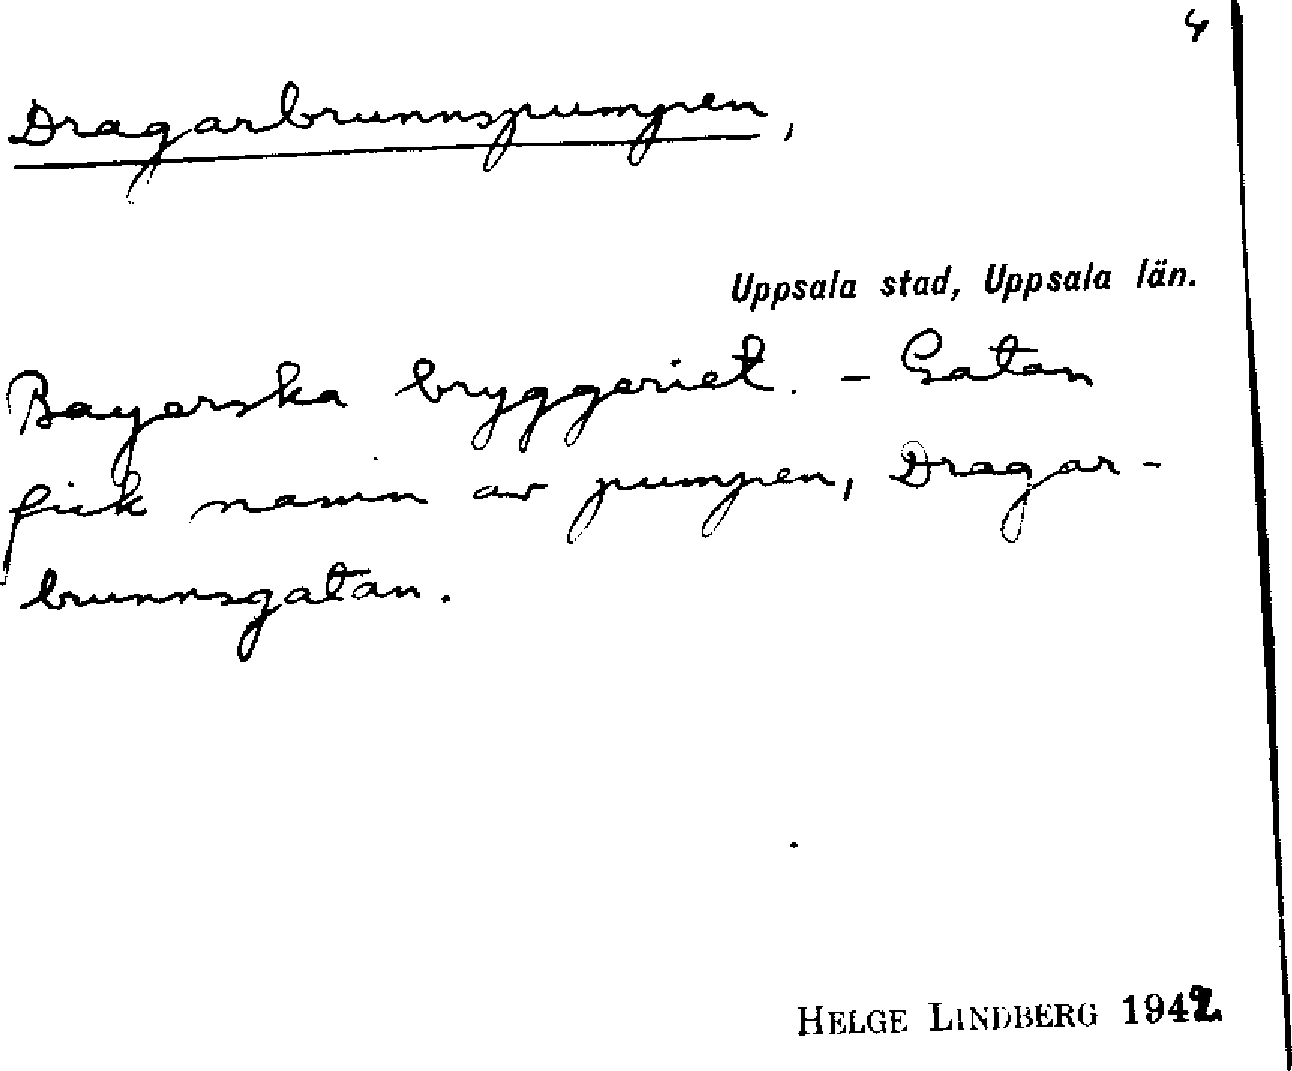 4
Dragarbrunnspumpen,
Uppsala stad, Uppsala län.
Bayerska bryggeriet. – Gatan
fick namn av pumpen, Dragar-
brunnsgatan.
HELGE LINDBERG 1942